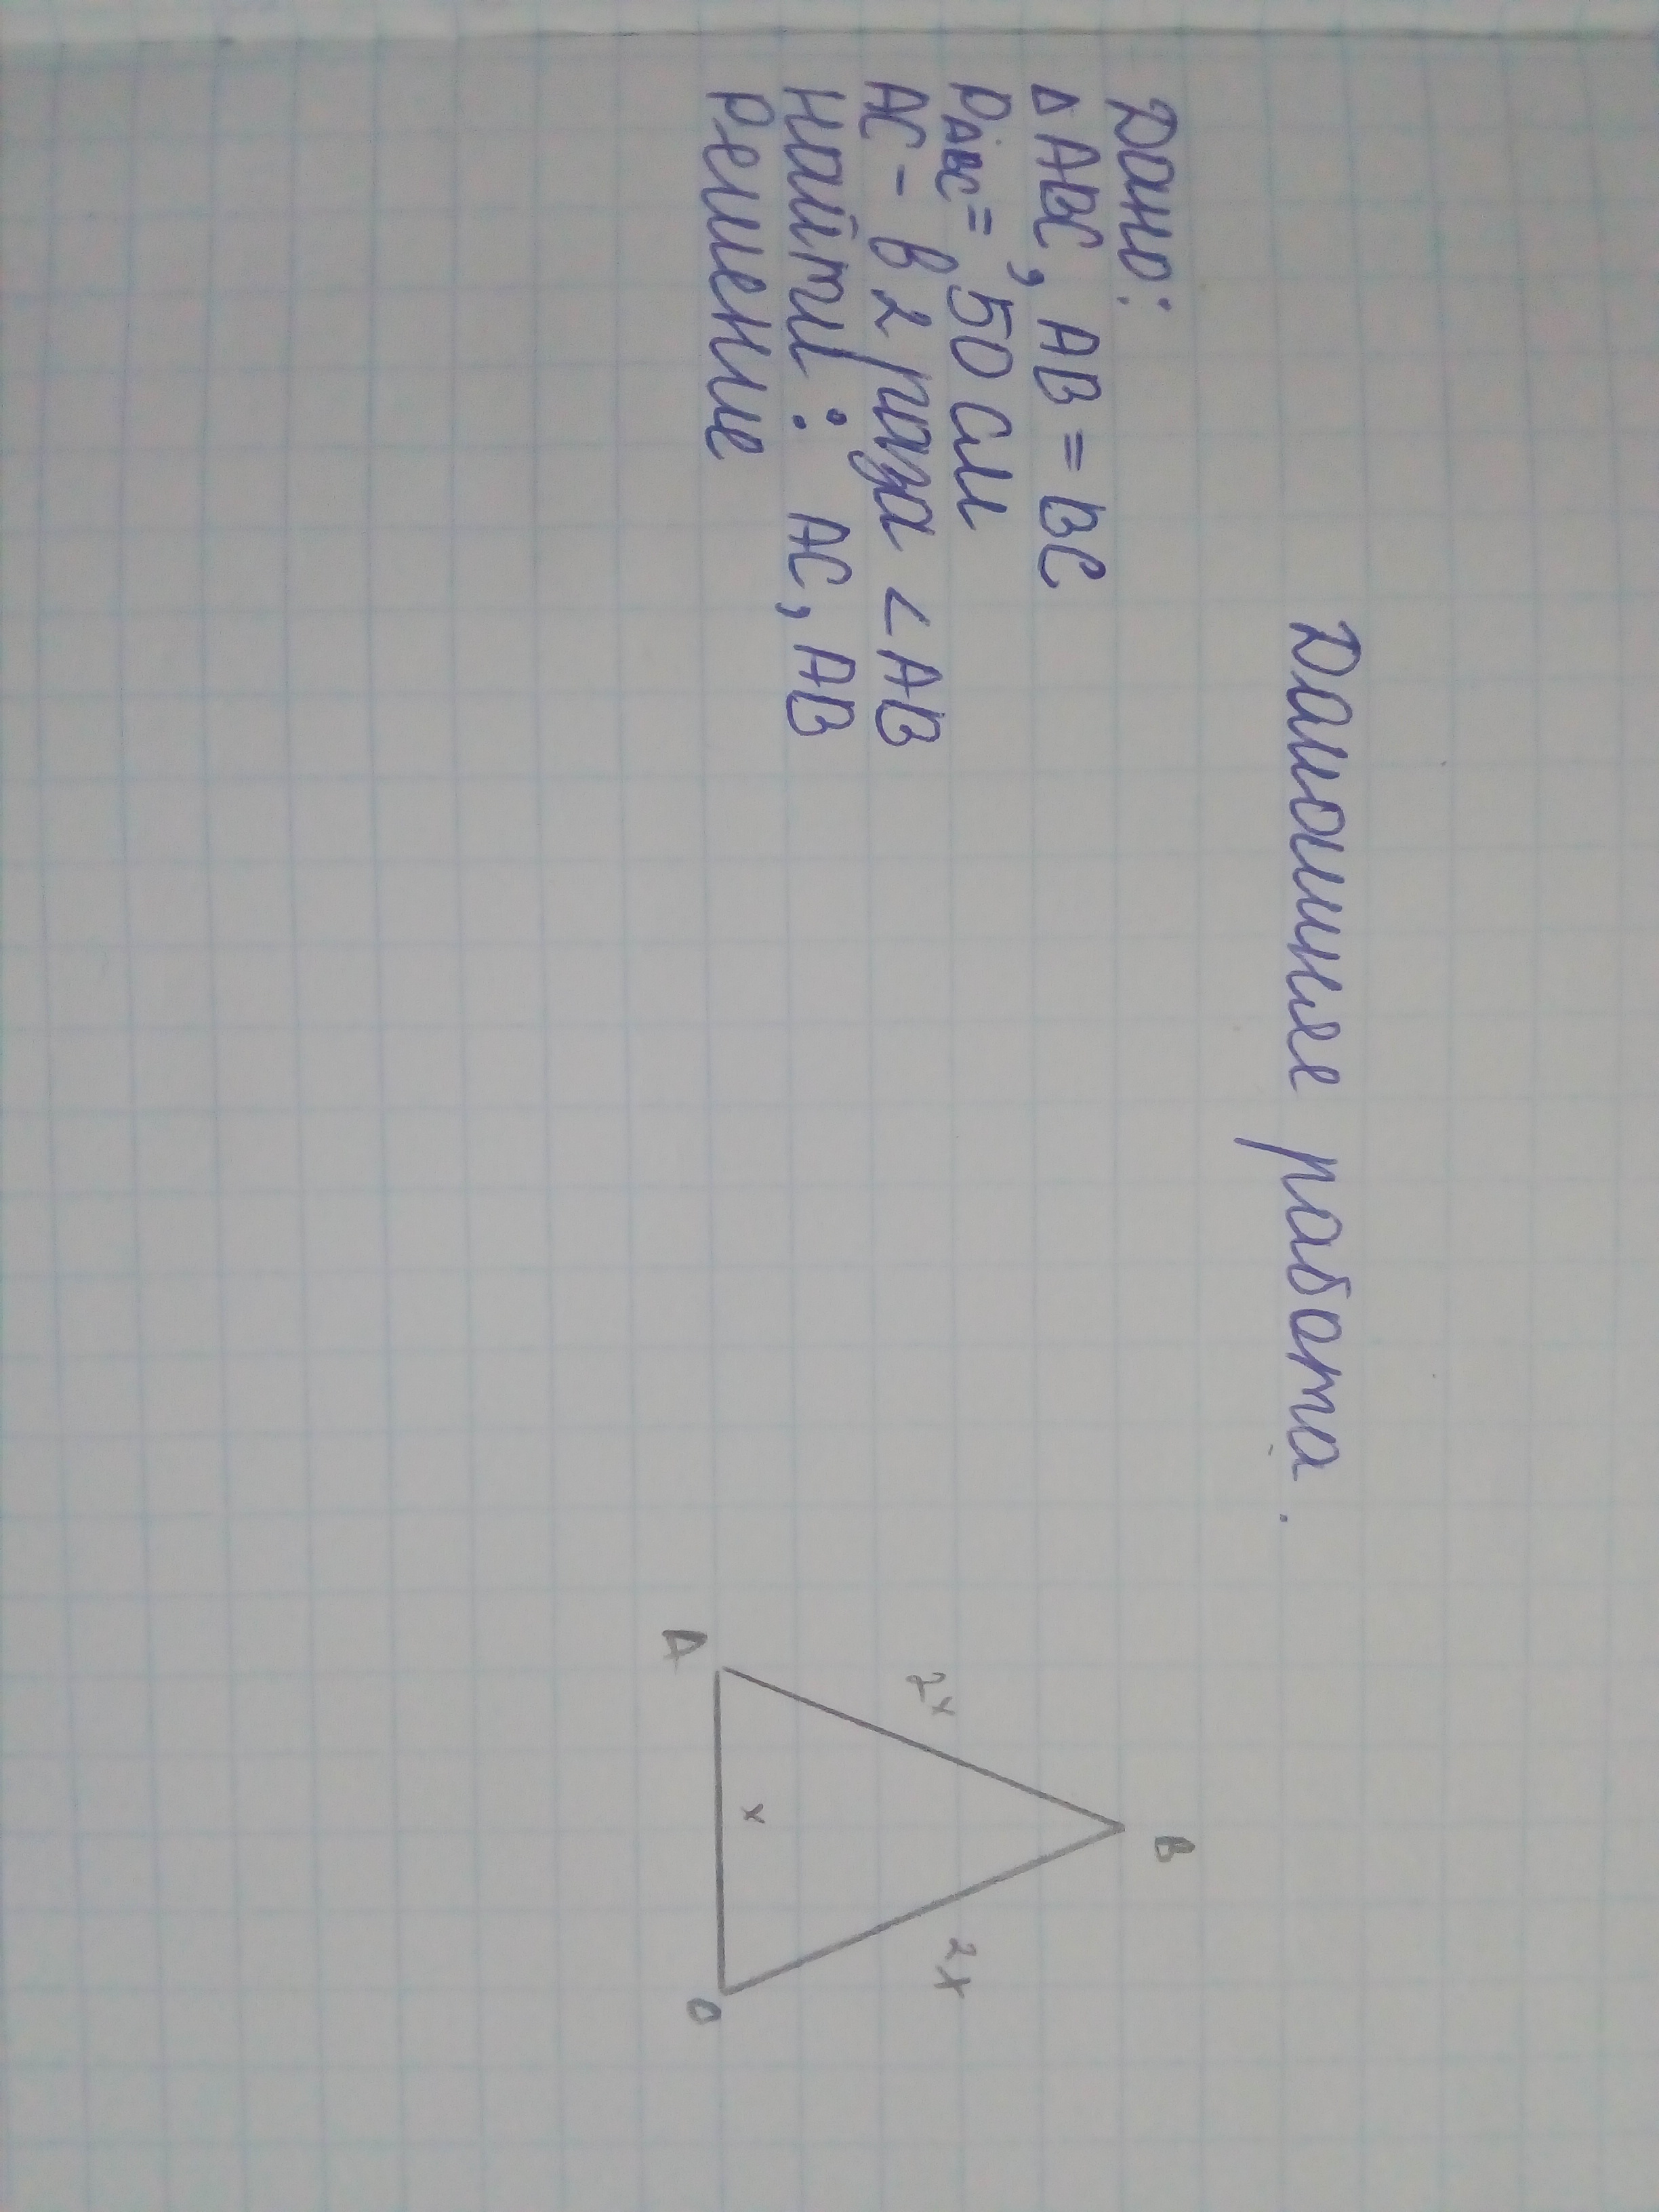 Домашнее работа.
Дано:
△ABC, AB = BC
PABC = 50 см
AC - в 2 раза < AB
Найти: AC, AB
Решение
B
2x
2x
x
A
C